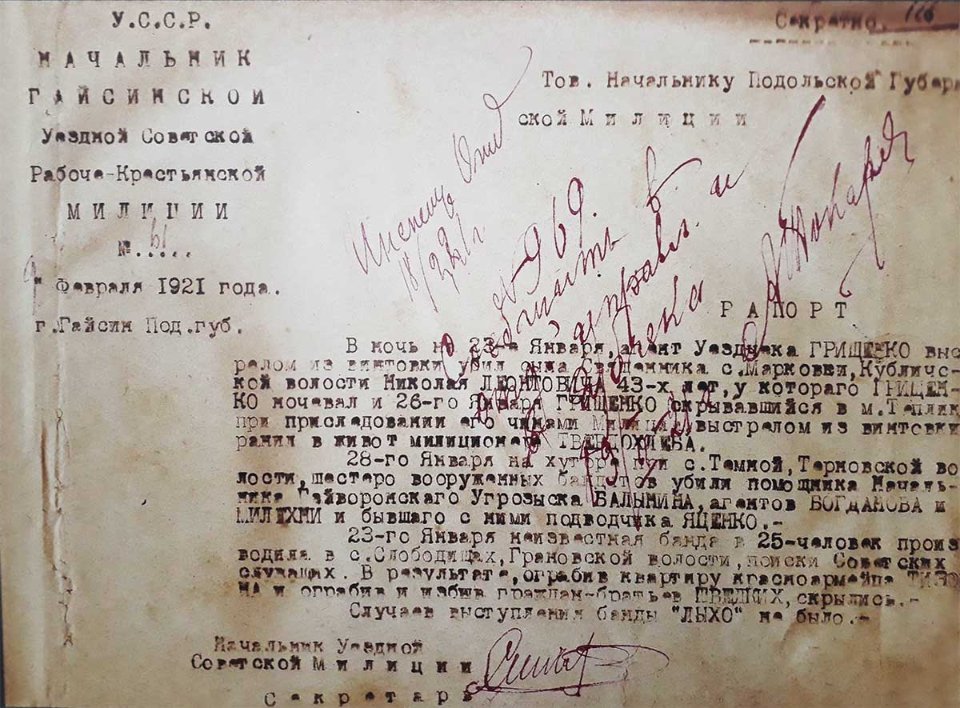 У.С.С.Р.
НАЧАЛЬНИК
ГАЙСИНСКОЙ
Уездной Советской
Рабоче-Крестьянской
МИЛИЦИИ
№ 61
Февраля 1921 года.
г.Гайсин Под.губ.
Секретно.
Тов. Начальнику Подольской Губерн
ской Милиции
№ 969.
РАПОРТ
В ночь на 23-е Января, агент Уездчека ГРИЩЕНКО выс
релом из винтовки убил сына священника с.Марковки, Кублическ
кой волости Николая ЛЕОНТОВИЧА 43-х лет, у котораго ГРИЩЕН-
КО ночевал и 26-го Января ГРИЩЕНКО скрывавшийся в м.Теплик
при приследовании его чинами Милиции, выстрелом из винтовки
ранил в живот милиционера ТВЕРДОХЛЕБА.
28-го Января на хуторе при с.Темной, Терновской во
лости, шестеро вооруженных бандитов убили помощника Началь-
ника Гайворонского Угрозыска БАЛЫНИНА, агентов БОГДАНОВА и
и бывшаго с ними подводчика ЯЦЕНКО.-
23-го Января неизвестная банда в 25-человек произ
водила в с.Слободищах, Грановской волости, поиски Советских
служащих. В результате, ограбив квартиру красноармейца
НА и ограбив и избив граждан-братьев ШВЕДКИХ, скрылись.-
Случаев выступления банды "ЛЫХО" не было.-
Начальник Уездной
Советской Милиции
Секретарь